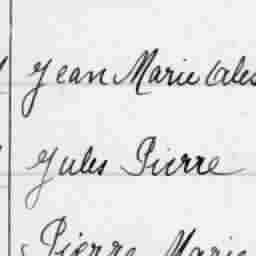 Jean Marie Ales
Jules Pierre
Pierre Marie